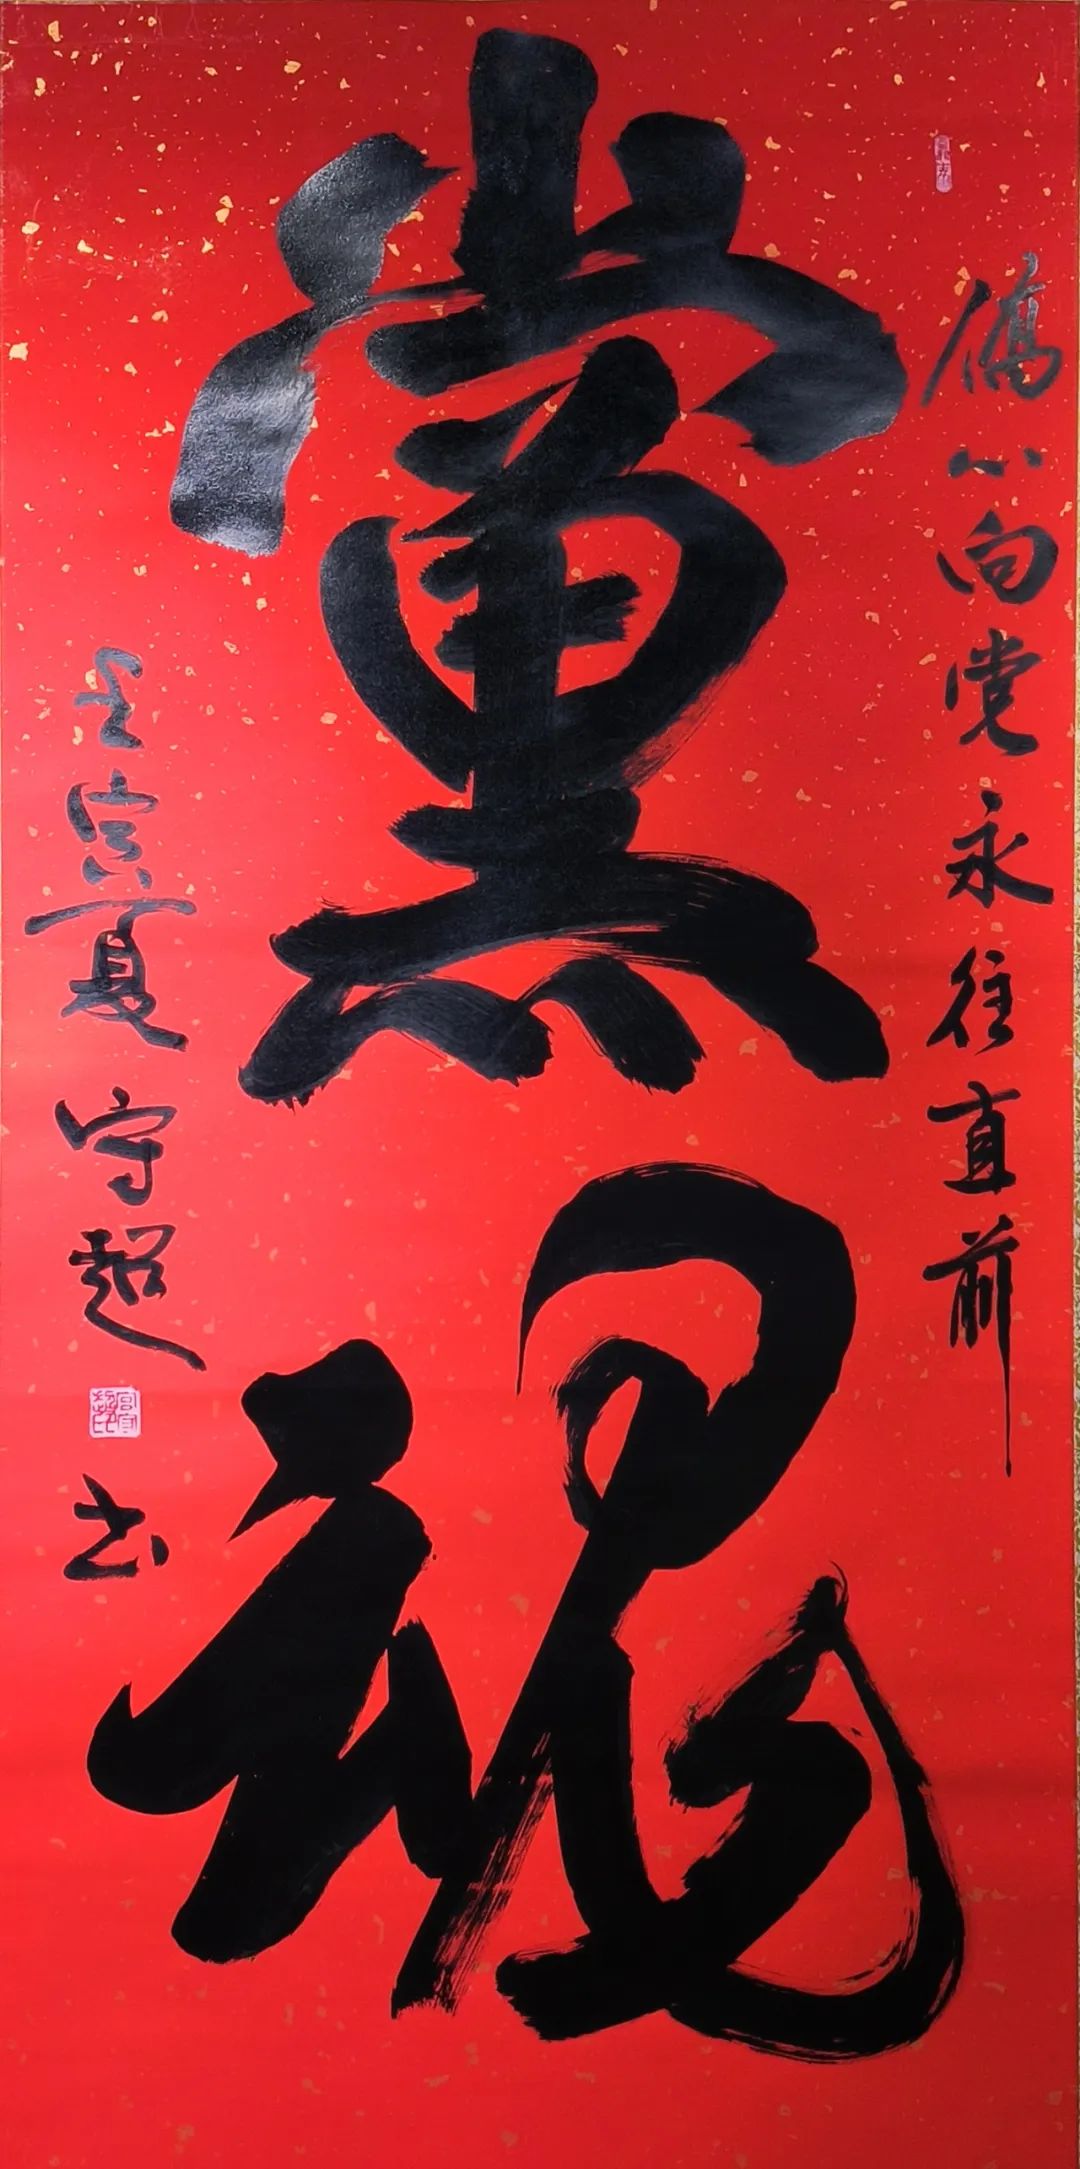 僑心向党永往直前
黨魂
壬寅夏守超书